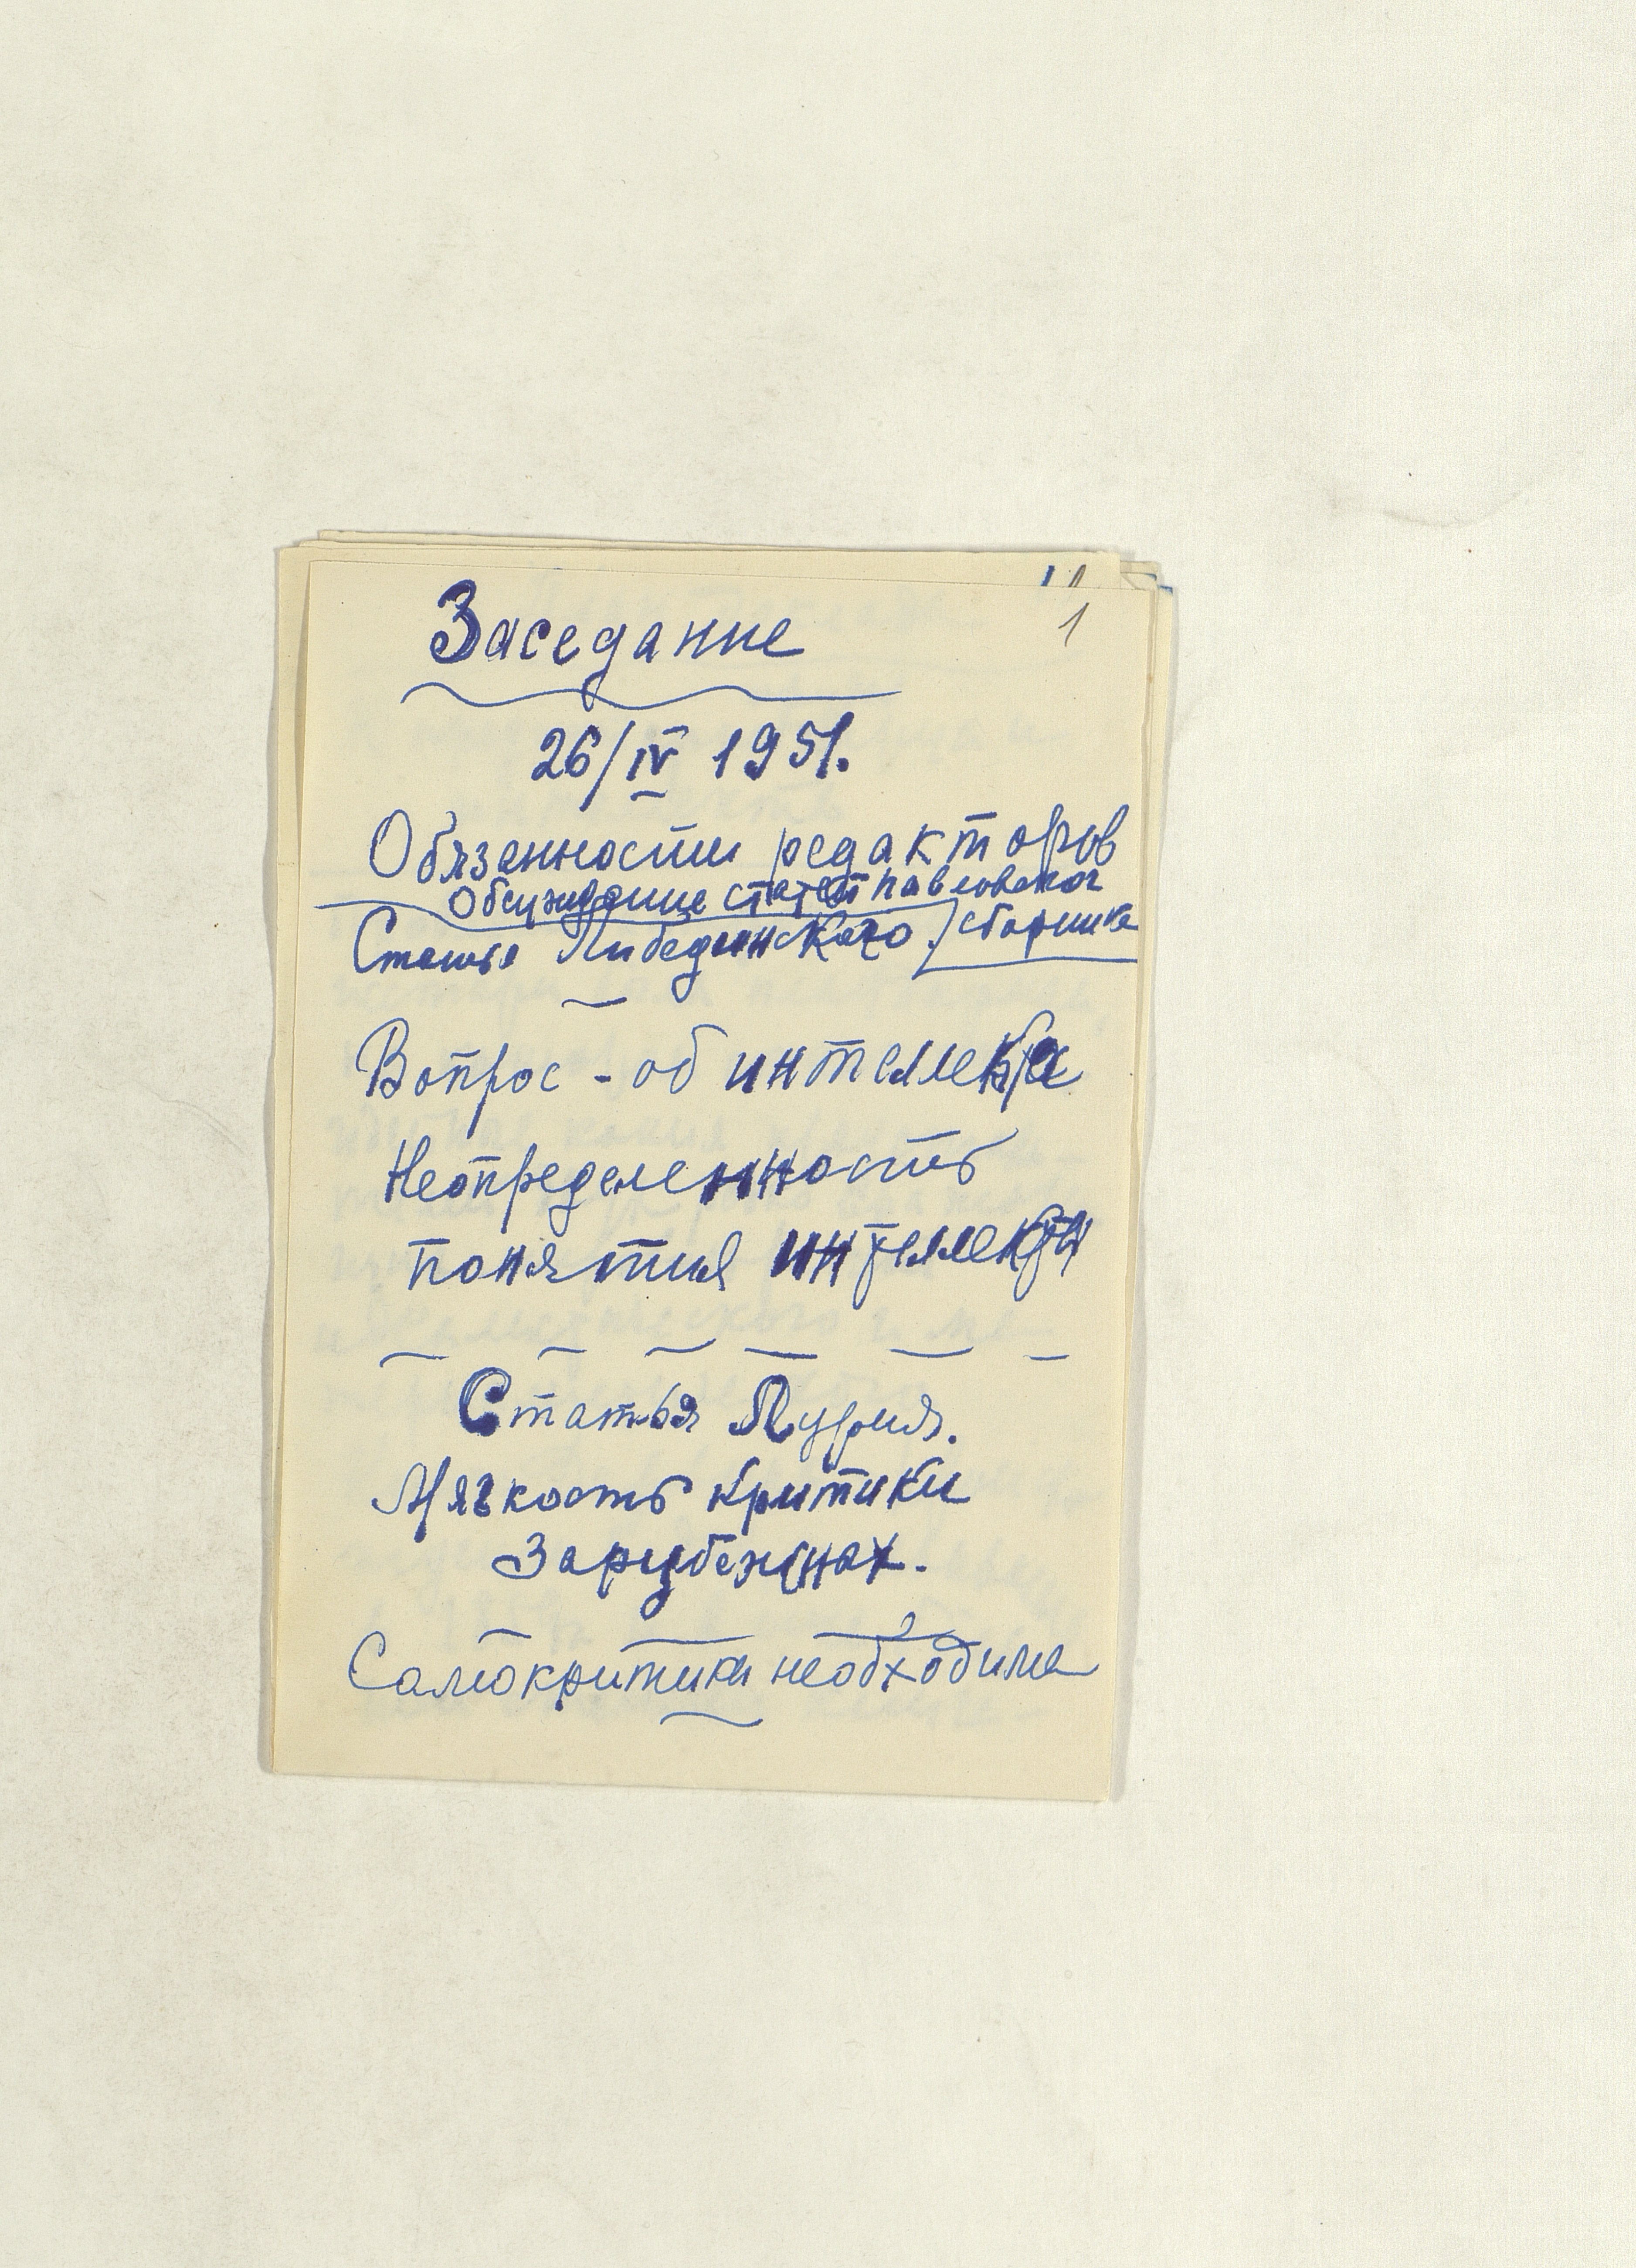 1
Заседание
26/IV 1951.
Обязанности редакторов
Обсуждение статей павловског
сборника
Статья Либединского.
Вопрос - об интеллекте
Неопределенность
понятия интеллекта
Статья Лурия.
Мягкость критики
Зарубежных.
Самокритика необходима